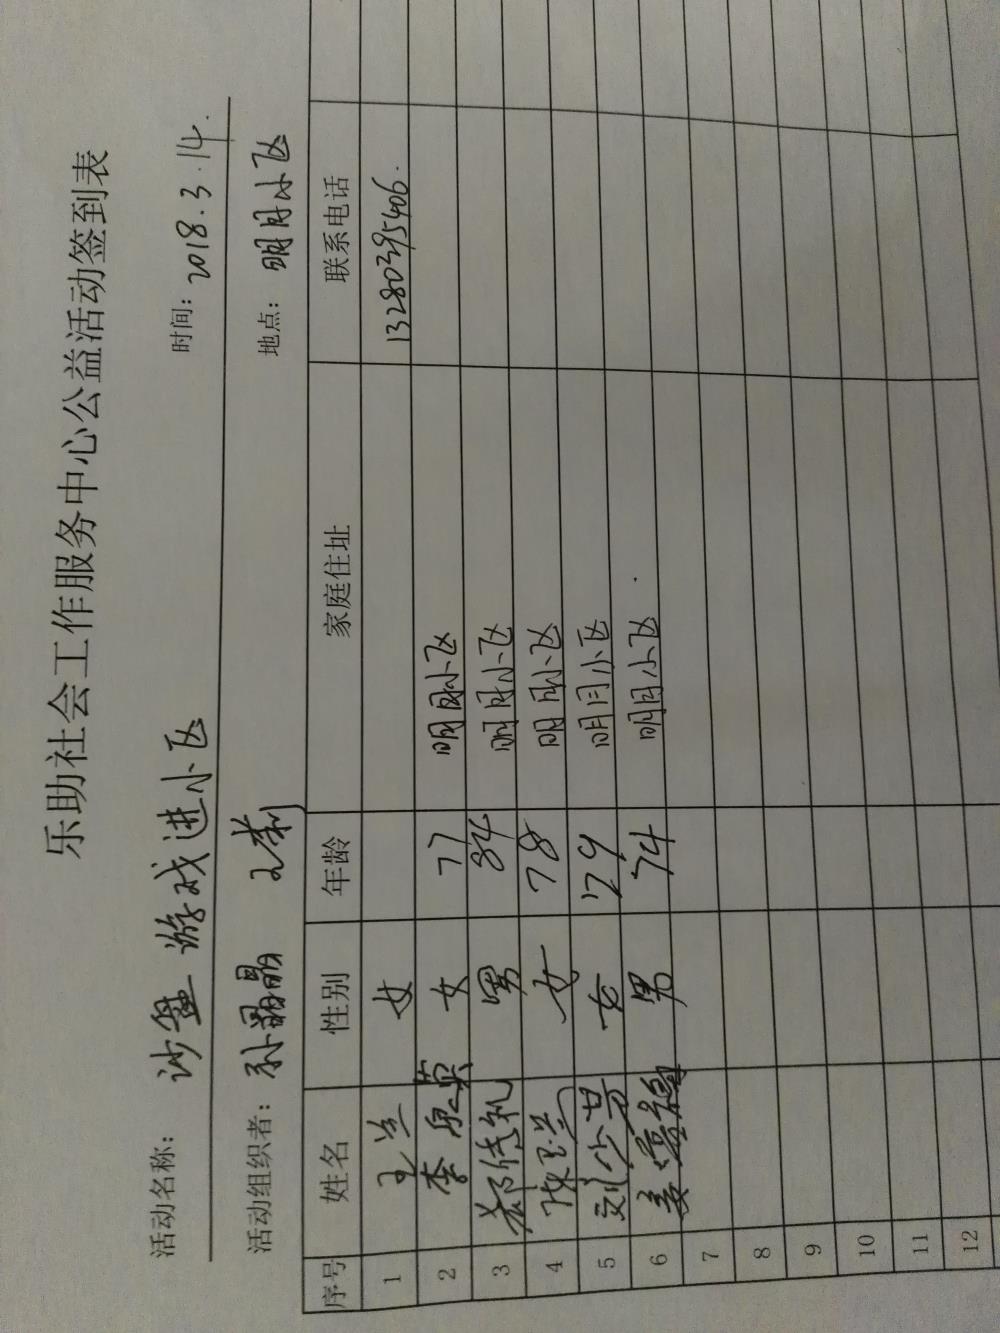 乐助社会工作服务中心公益活动签到表
活动名称： 沙盘游戏进小区 时间：2018.3.14.
活动组织者：孙晶晶 王莉 地点：明月小区
序号 姓名 性别 年龄 家庭住址 联系电话
1 王兰 女 13280395406.
2 李泉英 女 77 明月小区
3 郑传礼 男 84 明月小区
4 陈玉兰 女 78 明月小区
5 刘少芳 女 79 明月小区
6 姜 男 74 明月小区.
7
8
9
10
11
12